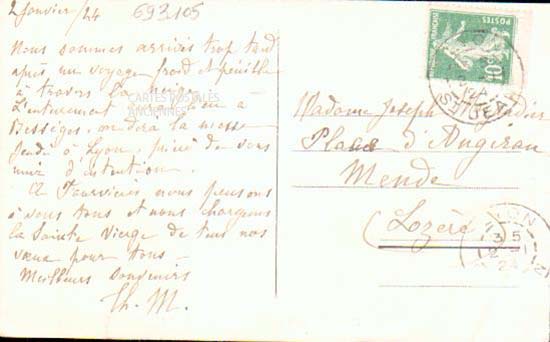 2 Janvier /24
693105
Nous sommes arrivés trop tard
après un voyage froid et pénible
à travers la neige.
L'enterrement aura lieu à
Bessèges, on dira la messe
Jeudi à Lyon, priez de vous
unir d'intention.
A Fourvière nous pensons
à vous tous et nous chargeons
la Sainte Vierge de tous nos
vœux pour tous –
Meilleurs souvenirs
Th. M.
CARTES POSTALES
ANCIENNES
POSTES
10
Madame Joseph
Place d'Angiran
Mende
(Lozère)